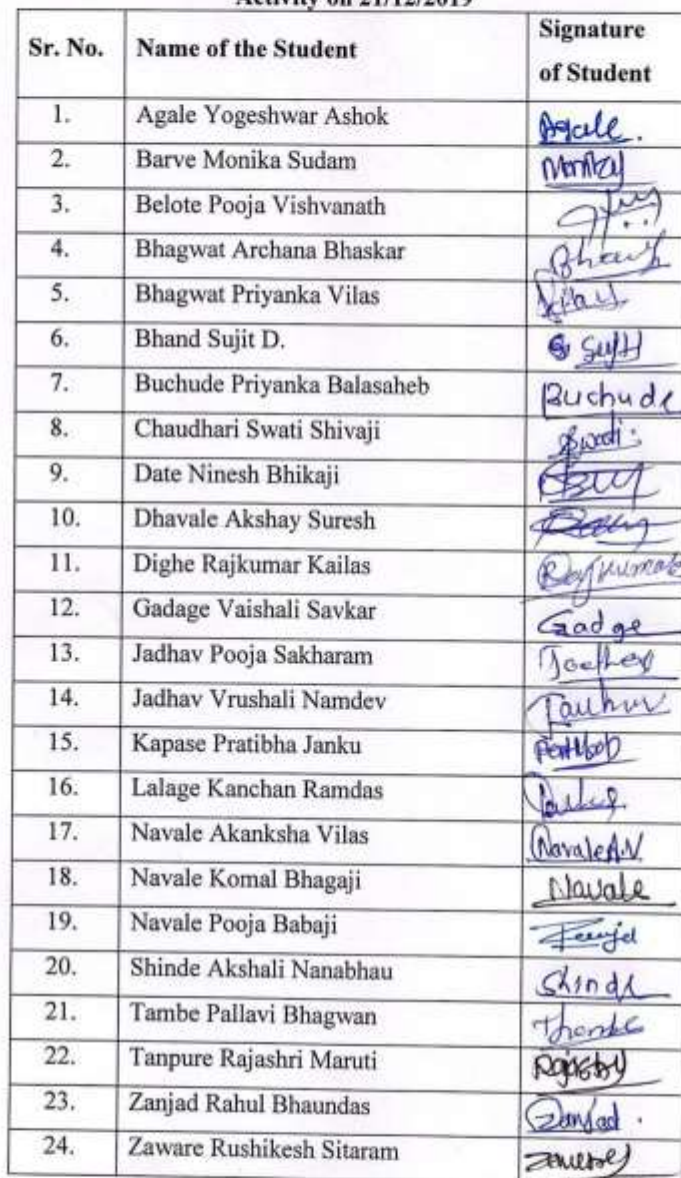 Activity on 21/12/2019
Sr. No. Name of the Student Signature of Student
1. Agale Yogeshwar Ashok Agale.
2. Barve Monika Sudam
3. Belote Pooja Vishvanath
4. Bhagwat Archana Bhaskar
5. Bhagwat Priyanka Vilas
6. Bhand Sujit D. Sujit
7. Buchude Priyanka Balasaheb Buchude
8. Chaudhari Swati Shivaji Swati
9. Date Ninesh Bhikaji
10. Dhavale Akshay Suresh
11. Dighe Rajkumar Kailas Rajkumar
12. Gadage Vaishali Savkar Gadge
13. Jadhav Pooja Sakharam
14. Jadhav Vrushali Namdev
15. Kapase Pratibha Janku
16. Lalage Kanchan Ramdas
17. Navale Akanksha Vilas Navale A.V.
18. Navale Komal Bhagaji Navale
19. Navale Pooja Babaji
20. Shinde Akshali Nanabhau Shinde
21. Tambe Pallavi Bhagwan
22. Tanpure Rajashri Maruti
23. Zanjad Rahul Bhaundas Zanjad.
24. Zaware Rushikesh Sitaram